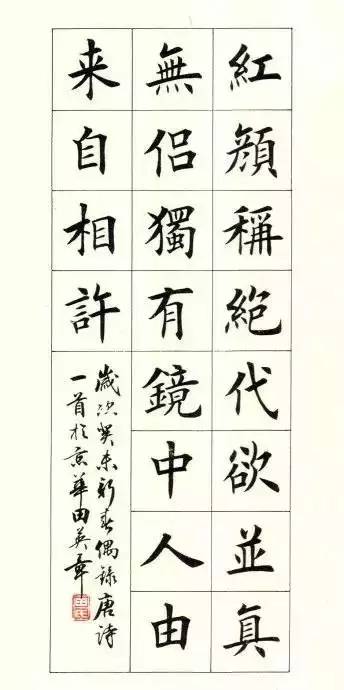 紅顔稱絕代欲並真
無侣獨有鏡中人由
来自相許
歲次癸未新春偶錄唐诗
一首於京華田英章